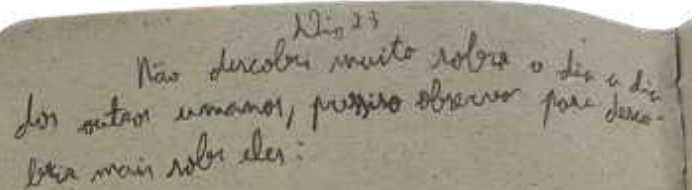 Dia 23
Não descobri muito sobre o dia a dia
dos outros umanos, pressiso observar para desco-
brir mais sobre eles: